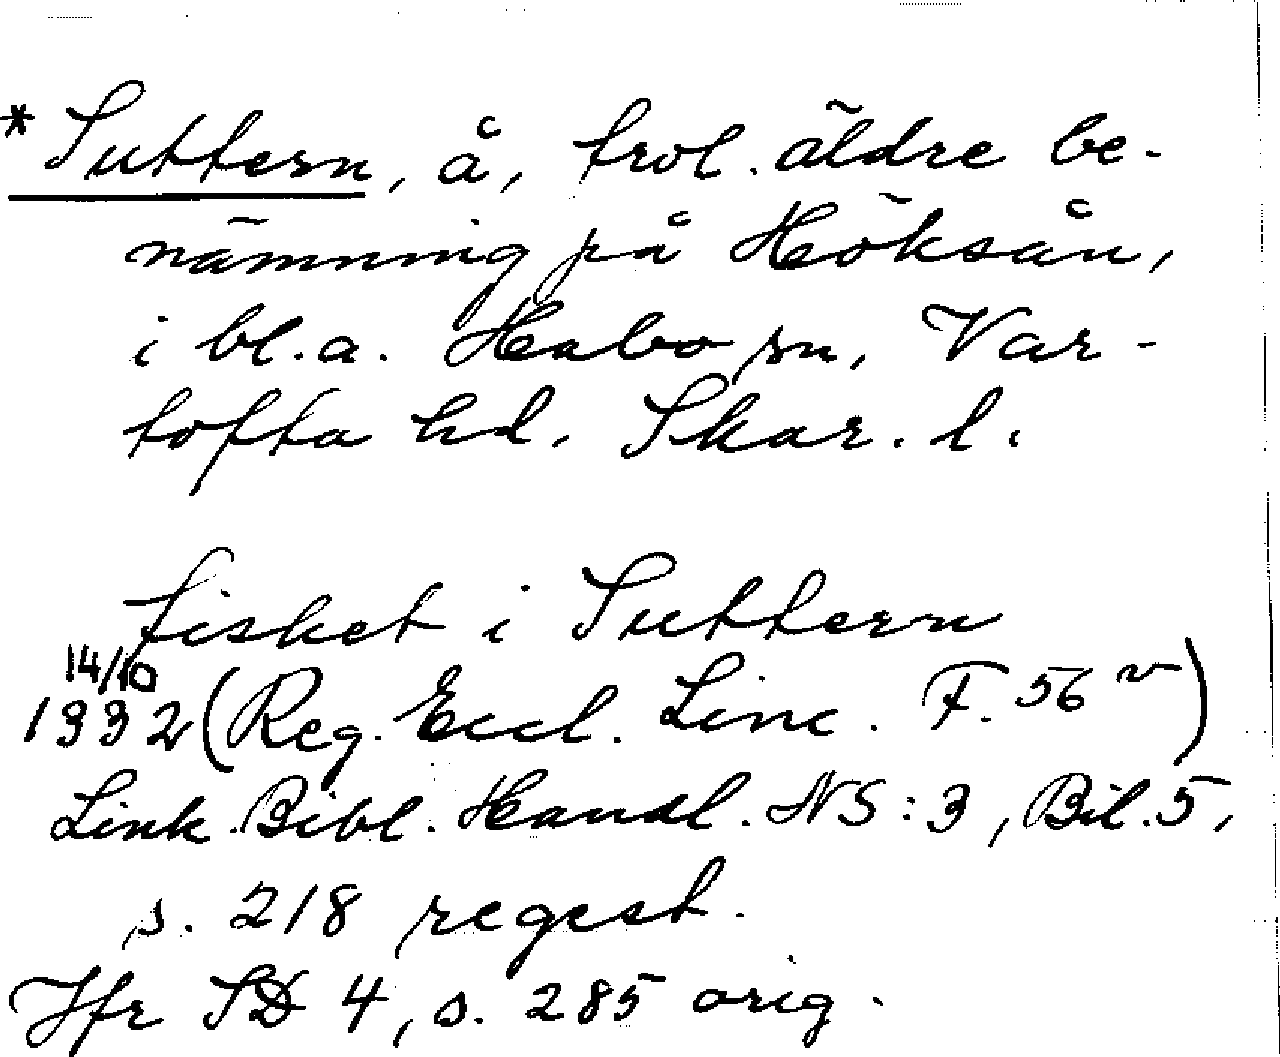 *Suttern, å, trol. äldre be-
nämning på Höksån,
i bl.a. Habo sn, Var-
tofta hd. Skar. l.
fisket i Suttern
14/10
1332 (Reg. Eccl. Linc. F. 56 v)
Link. Bibl. Handl. NS:3, Bil. 5,
s. 218 regest.
Jfr SD 4, s. 285 orig.